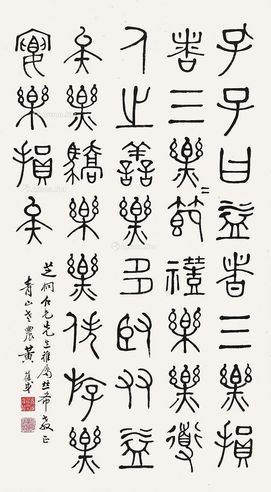 孔子曰益者三樂損
者三樂〻節禮樂樂道
人之善樂多臤友益
矣樂驕樂樂佚游樂
宴樂損矣
芝桐仁兄先生雅屬並希教正
青山老農黃葆戉